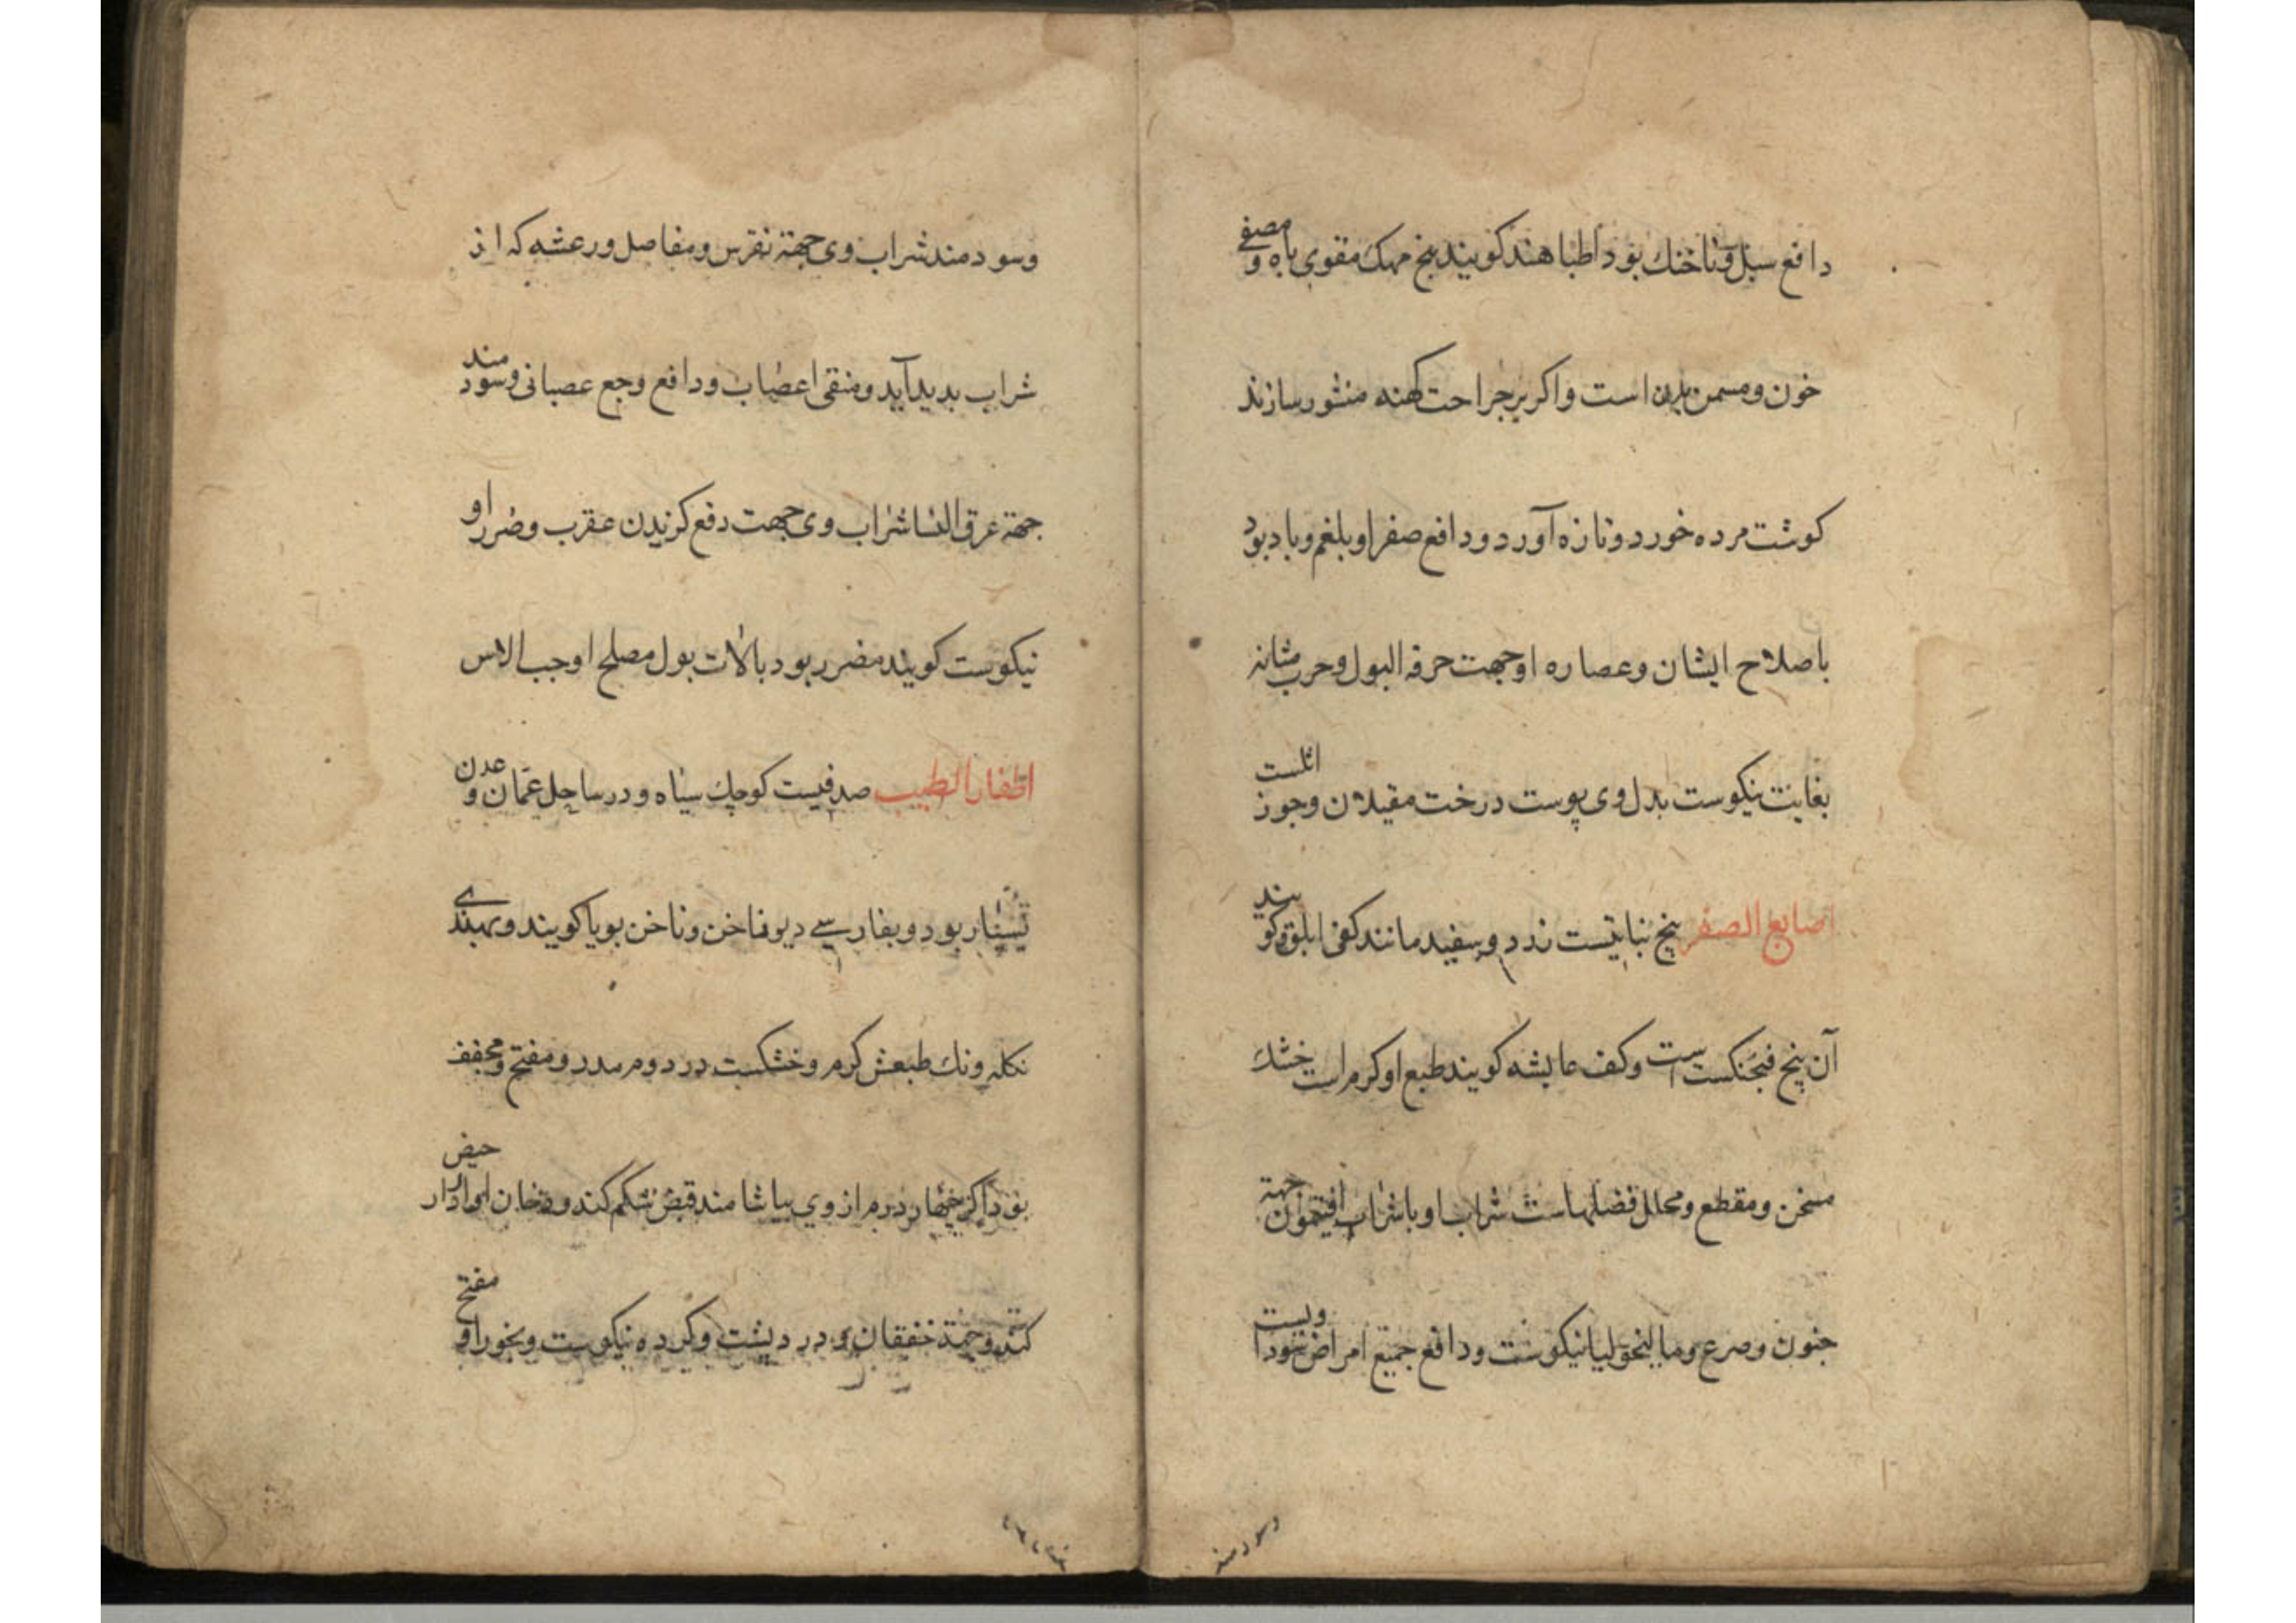 دافع سبل و ناخنك بود اطبا هند كويند بيخ مهك مقوى باه و مصفى
خون و مسمن بدن است و اكر بر جراحت كهنه منثور سازند
كوشت مرده خورد و تازه آورد و دافع صفرا و بلغم و باد بود
باصلاح ايشان و عصاره او جهت حرقه البول و حرب مثانه
بغايت نيكوست بدل وى پوست درخت مقيلان و جوز اثلست
اصابع الصفر بيخ نباتيست زرد و سفيد مانند كفى ابلق و كويند
آن بيخ فنجنكست است و كف عايشه كويند طبع او كرم است خشك
مسخن و مقطع و محلل فضلهاست شراب او با شراب افتيمون جهة
جنون و صرع و ماليخوليا نيكوست و دافع جميع امراض سوداويست
وسودمند
وسودمند شراب وى جهة نقرس و مفاصل و رعشه كه از
شراب بديد آيد و منقى اعصاب و دافع وجع عصبانى و سودمند
جهة عرق النسا شراب وى جهت دفع كزيدن عقرب و ضرر او
نيكوست كويند مضر بود بالات بول مصلح او حب الاس
اظفار الطيب صدفيست كوچك سياه و در ساحل عمان و عدن
بسيار بود و بفارسے ديو ناخن و ناخن بويا كويند و بهندى
نكله ونك طبعش كرم و خشكست در دوم مدر و مفتح و مجفف
بود اكر چهار درم از وي بياشامند قبض شكم كند و دخان او ادرار حيض
كند و جهة خفقان و درد پشت و كرده نيكوست و بخور او مفتح